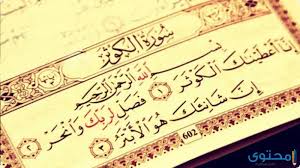 سُورَةُ الكَوْثَرِ
بِسْمِ اللَّهِ الرَّحْمَٰنِ الرَّحِيمِ
إِنَّا أَعْطَيْنَٰكَ الْكَوْثَرَ ١ فَصَلِّ لِرَبِّكَ وَانْحَرْ ٢
إِنَّ شَانِئَكَ هُوَ الْأَبْتَرُ ٣
602
محتوى